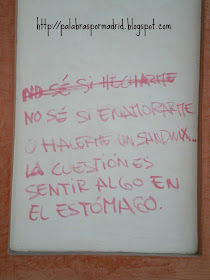 http://palabraspormadrid.blogspot.com
NO SÉ SI HECHARME
NO SÉ SI ENAMORARME
O HACERME UN SANDWIX...
LA CUESTIÓN ES
SENTIR ALGO EN
EL ESTÓMAGO.